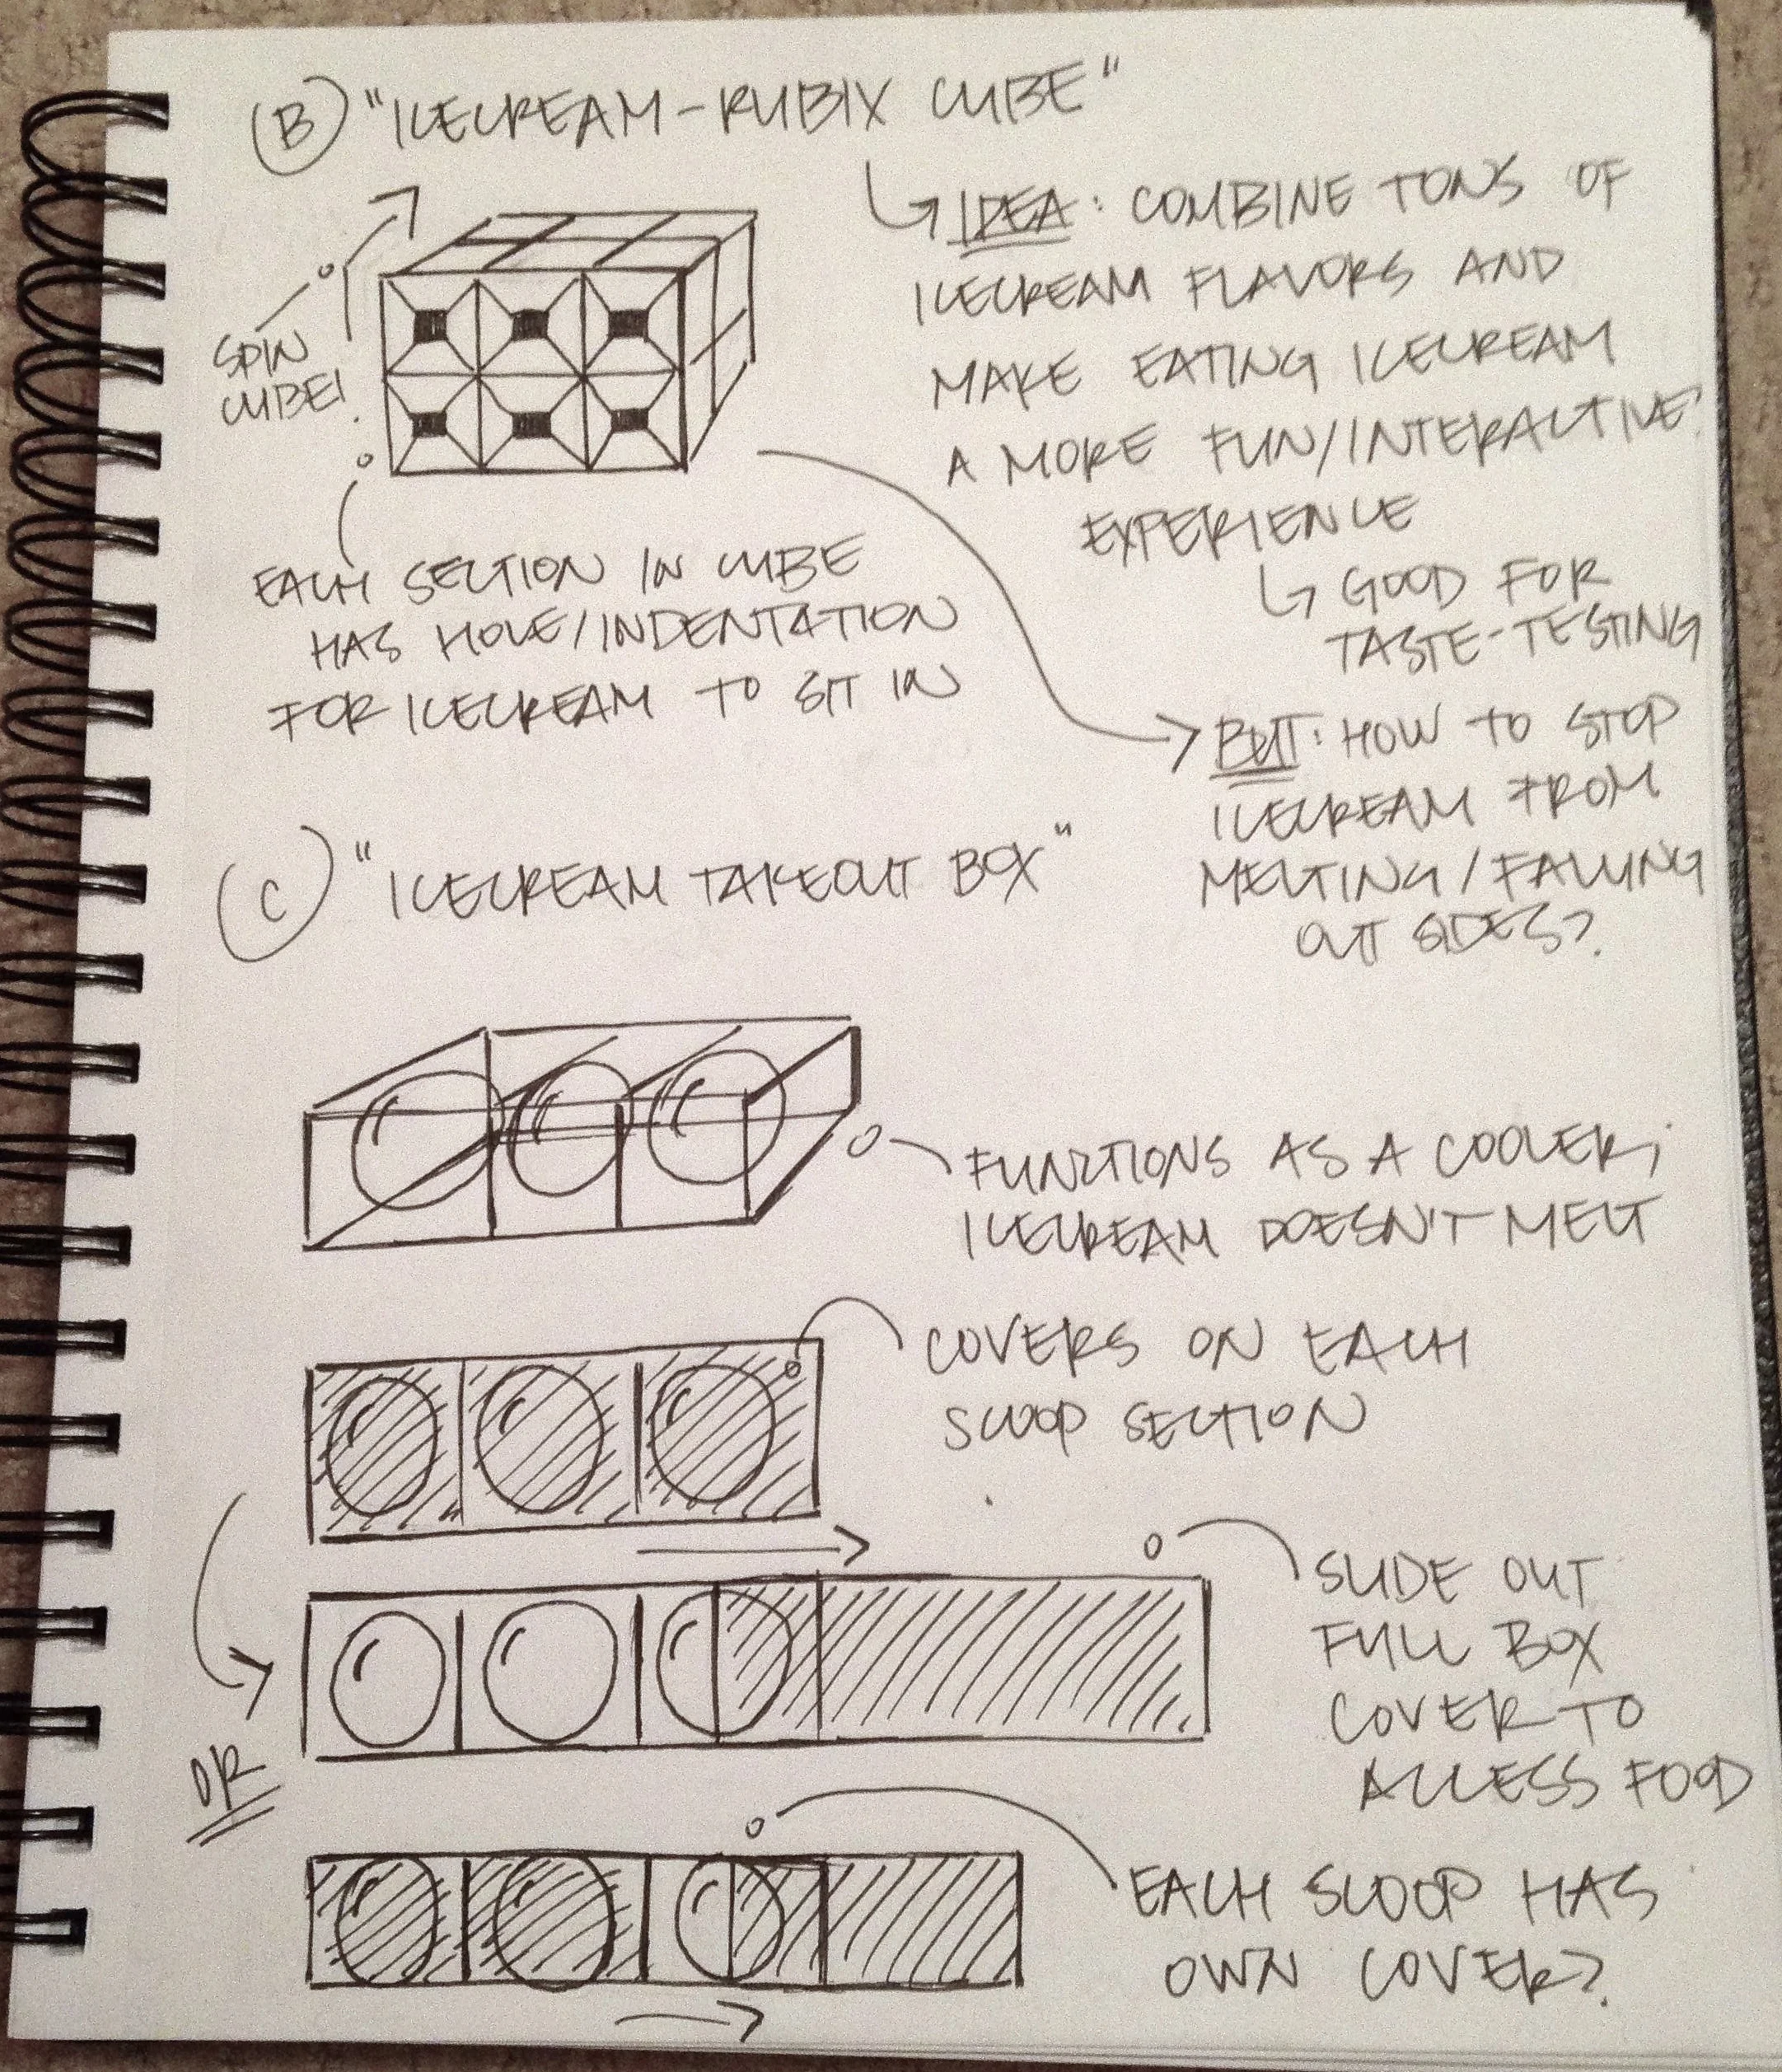 B "ICECREAM-RUBIX CUBE"
IDEA: COMBINE TONS OF
ICECREAM FLAVORS AND
MAKE EATING ICECREAM
A MORE FUN/INTERACTIVE
EXPERIENCE
GOOD FOR
TASTE-TESTING
SPIN
CUBE!
EACH SECTION IN CUBE
HAS HOLE/INDENTATION
FOR ICECREAM TO SIT IN
BUT: HOW TO STOP
ICECREAM FROM
MELTING/FALLING
OUT SIDES?
C "ICECREAM TAKEOUT BOX"
FUNCTIONS AS A COOLER;
ICECREAM DOESN'T MELT
COVERS ON EACH
SCOOP SECTION
SLIDE OUT
FULL BOX
COVER TO
ACCESS FOOD
OR
EACH SCOOP HAS
OWN COVER?